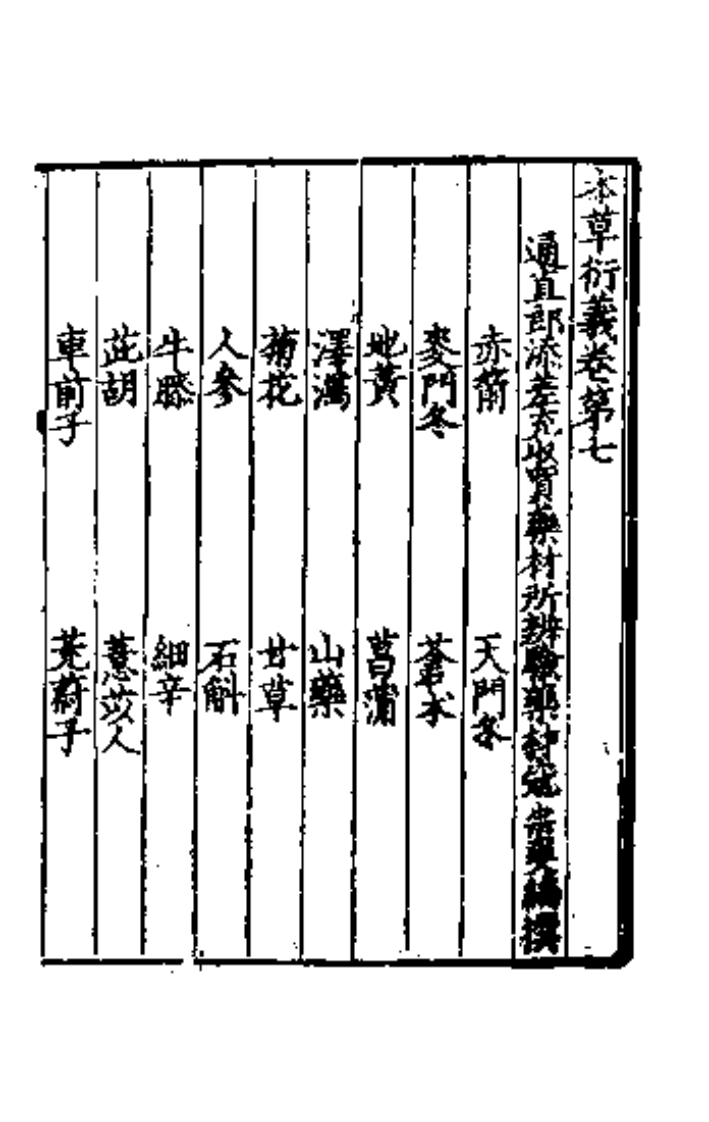 本草衍義卷第七
通直郎添差充收買藥材所辨驗藥材寇宗奭編撰
赤箭 天門冬
麥門冬 蒼术
地黃 菖蒲
澤瀉 山藥
菊花 甘草
人參 石斛
牛膝 細辛
茈胡 薏苡人
車前子 茺蔚子